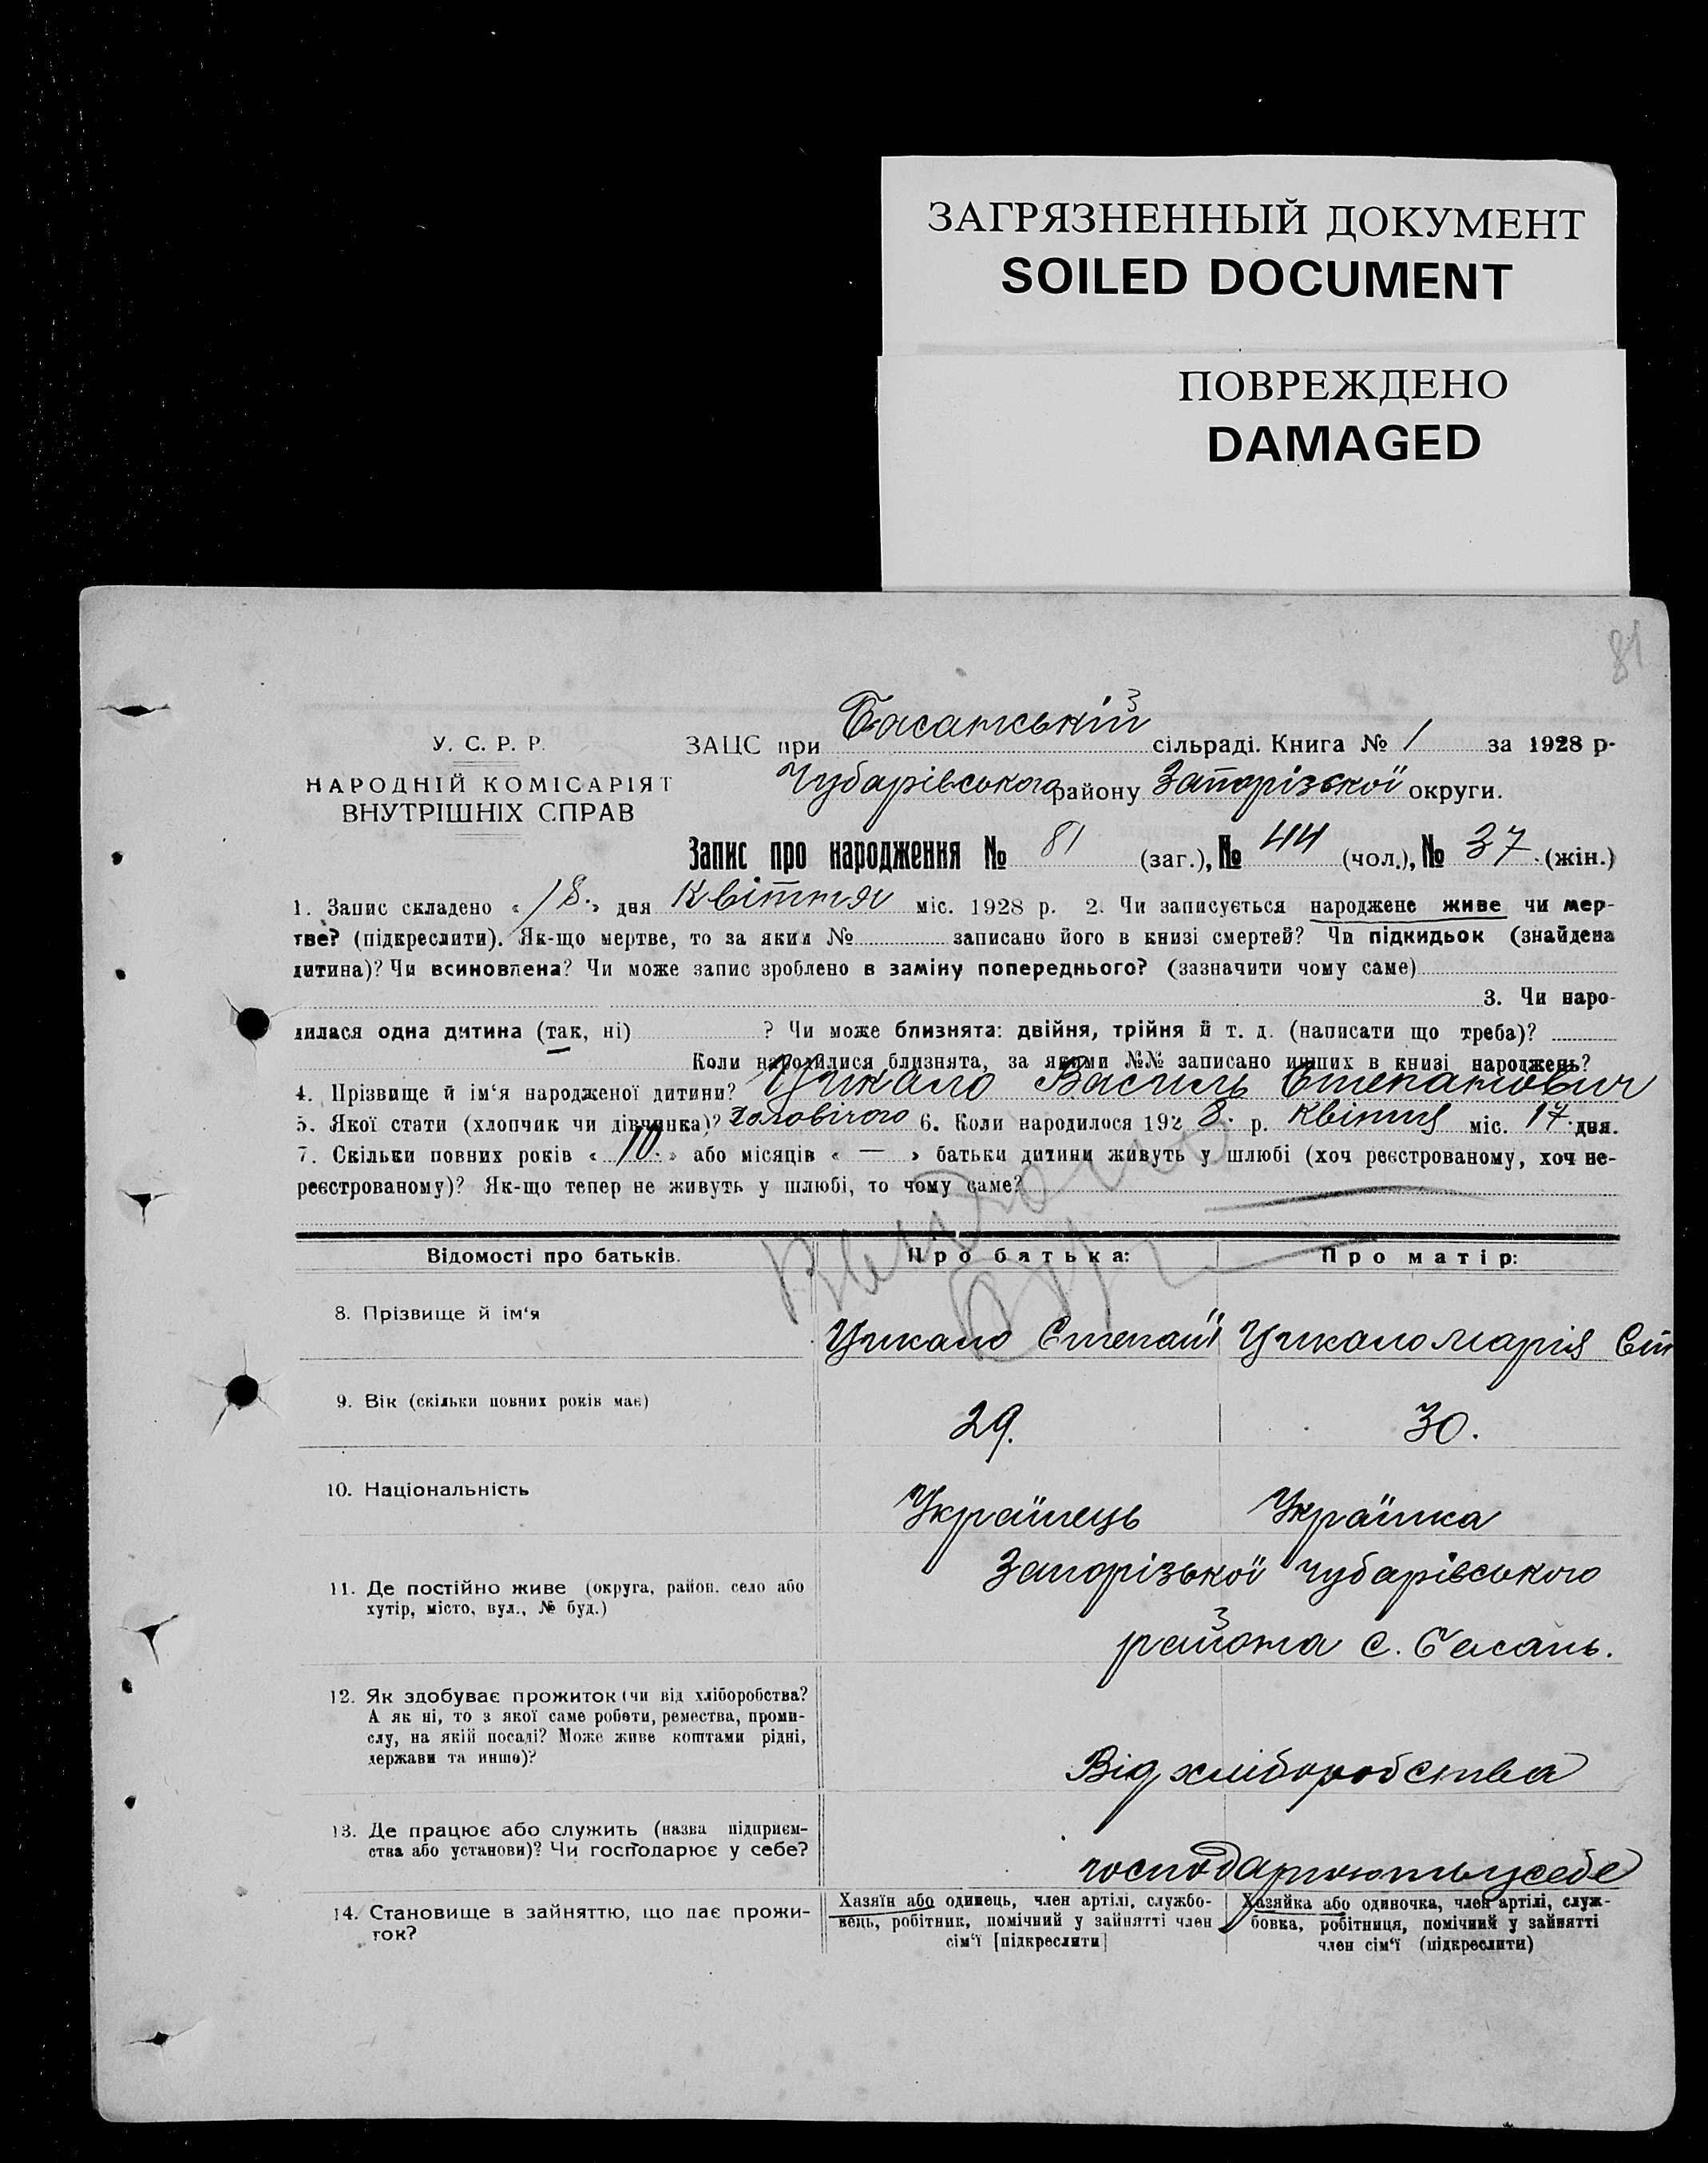 ЗАГРЯЗНЕННЫЙ ДОКУМЕНТ
SOILED DOCUMENT
ПОВРЕЖДЕНО
DAMAGED
81
У. С. Р. Р.
НАРОДНІЙ КОМІСАРІЯТ
ВНУТРІШНІХ СПРАВ
ЗАЦС при Басанській сільраді. Книга № 1 за 1928 р-
Чубарівського району Запорізької округи.
Запис про народження № 81 (заг.), № 44 (чол.), № 37 (жін.)
1. Запис складено « 18. » дня Квітня міс. 1928 р. 2. Чи записується народжене живе чи мер-
тве? (підкреслити). Як-що мертве, то за яким № записано його в книзі смертей? Чи підкидьок (знайдена
дитина)? Чи всиновлена? Чи може запис зроблено в заміну попереднього? (зазначити чому саме)
3. Чи наро-
дилася одна дитина (так, ні) ? Чи може близнята: двійня, трійня й т. д. (написати що треба)?
Коли народилися близнята, за якими №№ записано инших в книзі народжень?
4. Прізвище й ім‘я народженої дитини? Цикало Василь Степанович
5. Якої стати (хлопчик чи дівчинка)? Чоловічого 6. Коли народилося 192 8. р. Квітня міс. 17. дня.
7. Скільки повних років « 10. » або місяців « — » батьки дитини живуть у шлюбі (хоч реєстрованому, хоч не-
реєстрованому)? Як-що тепер не живуть у шлюбі, то чому саме?
Відомості про батьків.
Про батька:
Про матір:
8. Прізвище й ім‘я
Цикало Степан
Цикало Марія Ст
9. Вік (скільки повних років має)
29.
30.
10. Національність
Українець
Українка
11. Де постійно живе (округа, район. село або
хутір, місто, вул., № буд.)
Запорізької Чубарівського
района с. Басань.
12. Як здобуває прожиток (чи від хліборобства?
А як ні, то з якої саме роботи, ремества, проми-
слу, на якій посаді? Може живе коштами рідні,
держави та инше)?
Від хліборобства
13. Де працює або служить (назва підприєм-
ства або установи)? Чи господарює у себе?
господарюють у себе
14. Становище в зайняттю, що дає прожи-
ток?
Хазяїн або одинець, член артілі, службо-
вець, робітник, помічний у зайнятті член
сім‘ї [підкреслити]
Хазяйка або одиночка, член артілі, служ-
бовка, робітниця, помічний у зайнятті
член сім‘ї (підкреслити)